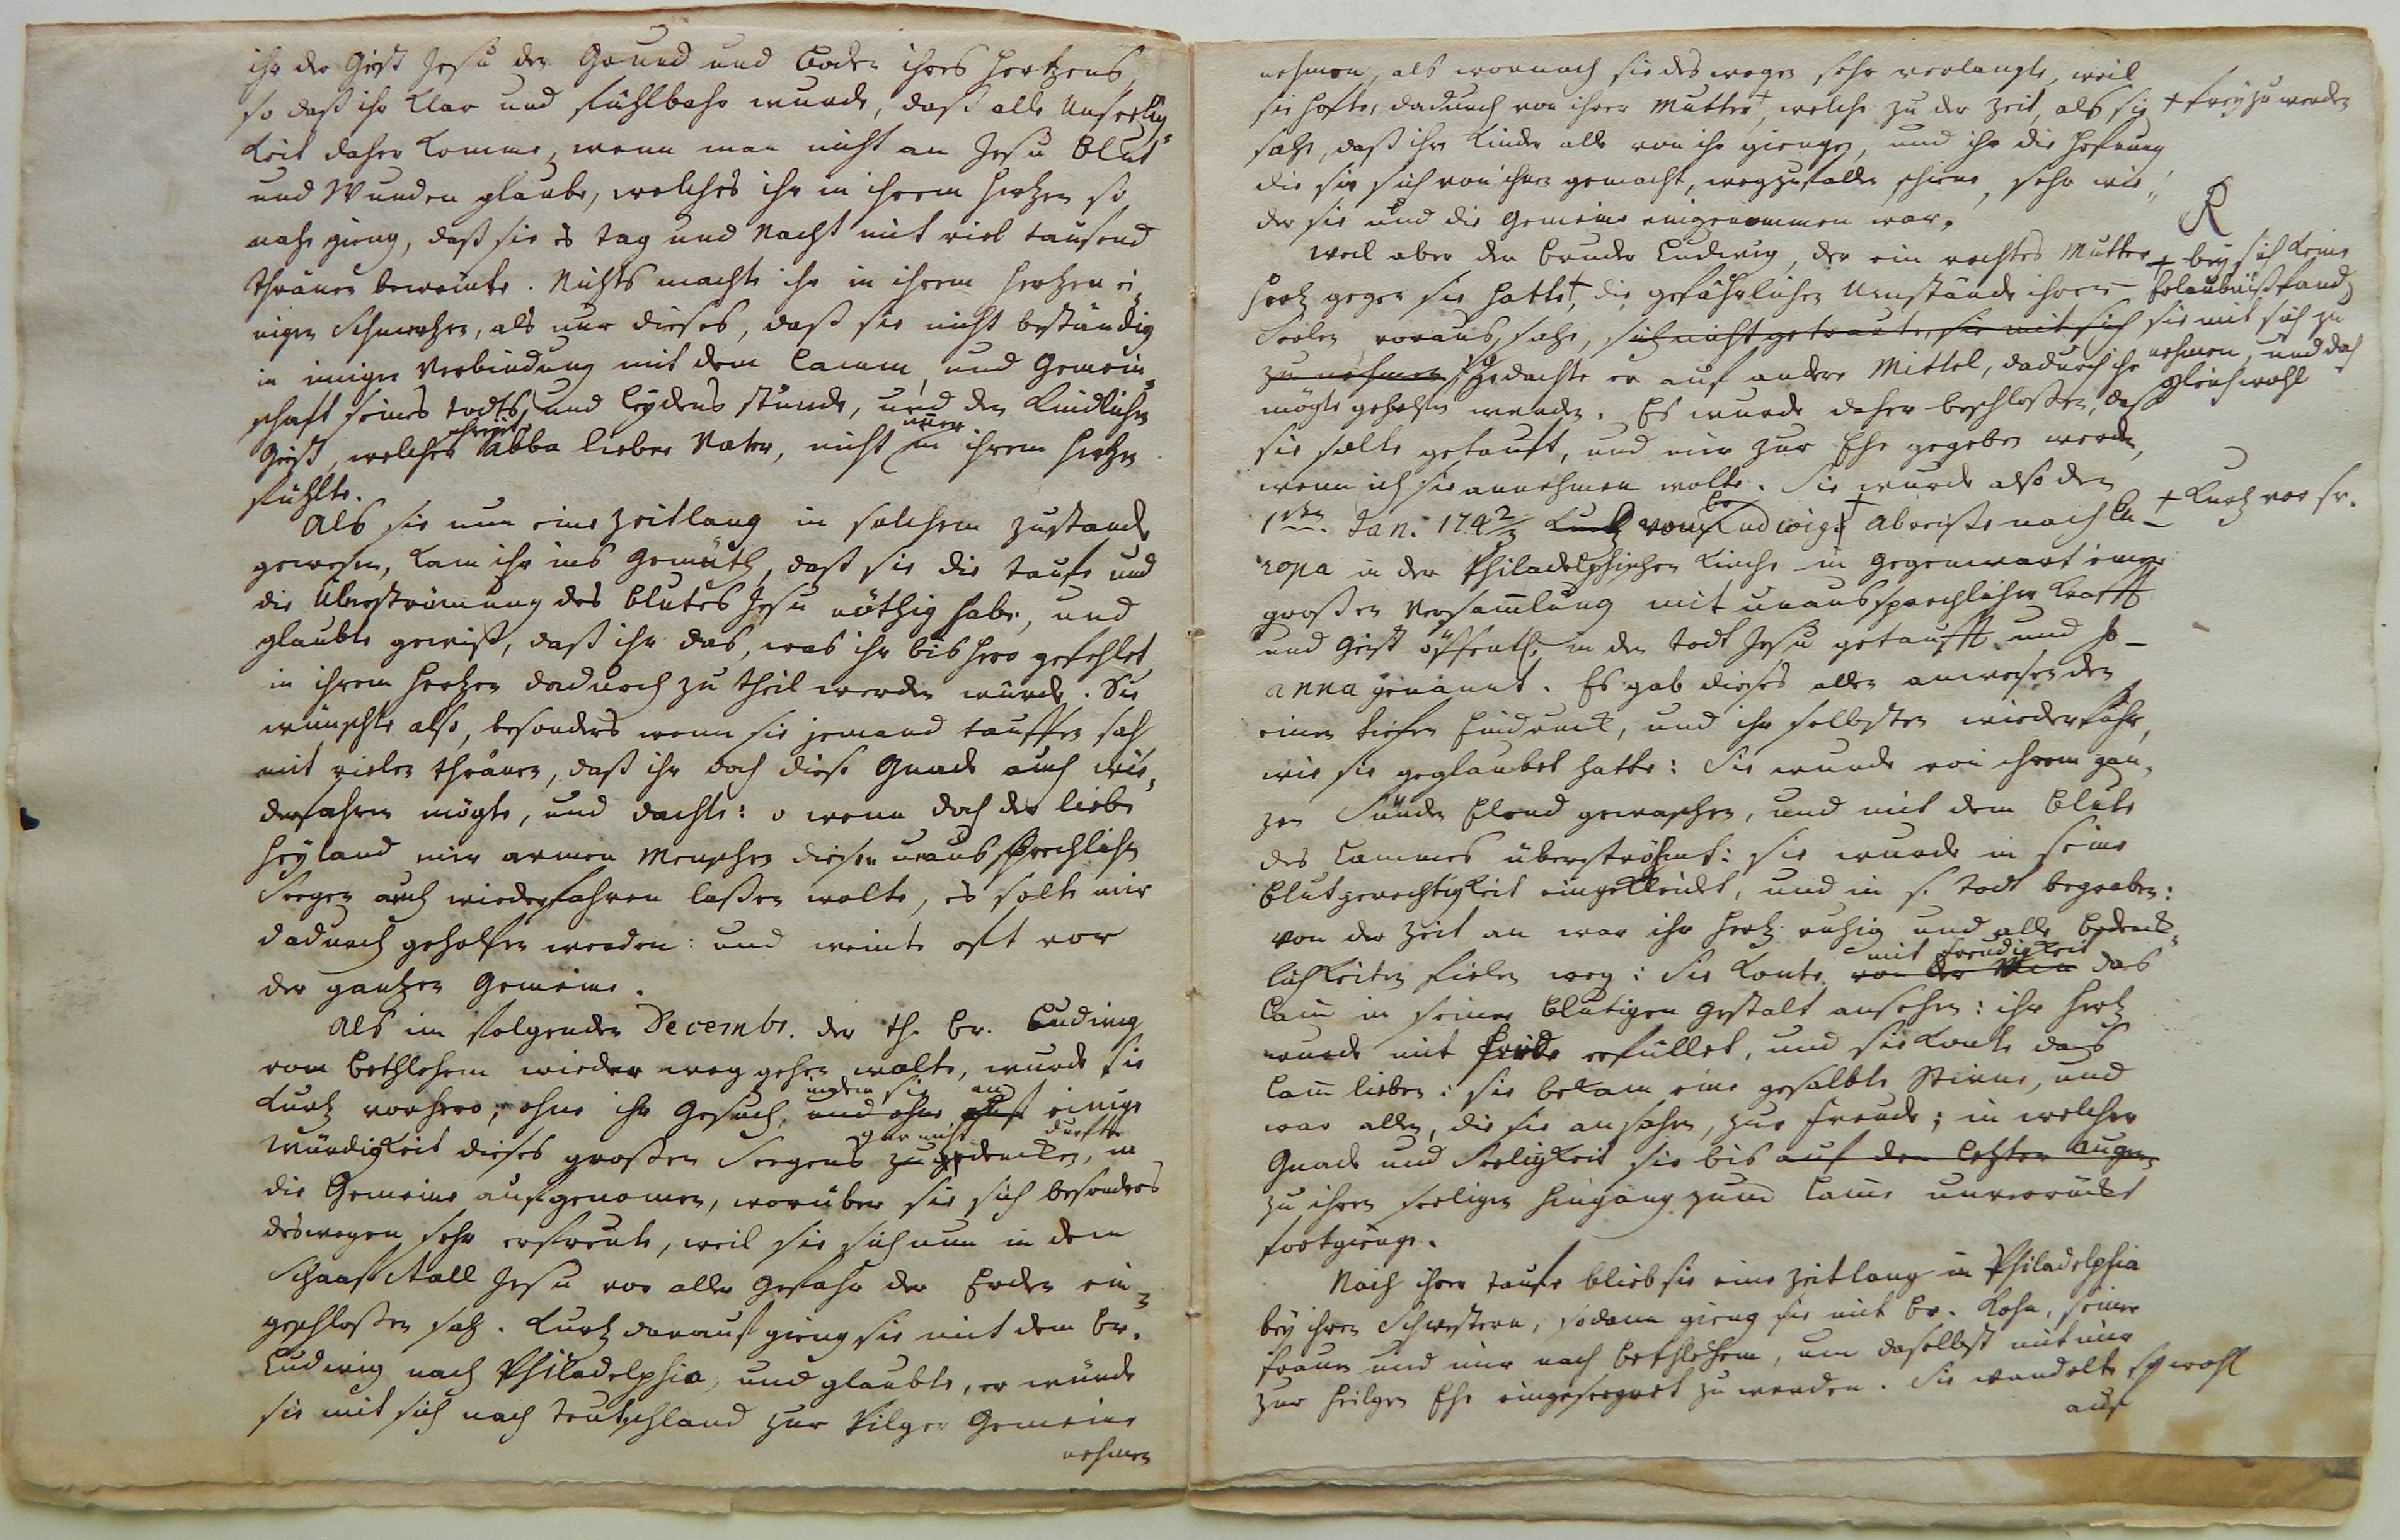 ihr der Geist Jesu den Grund und Boden ihres Hertzens,
so daß ihr klar und fühlbahr wurde, daß alle Unseelig=
keit daher komme, wenn man nicht an Jesu Blut
und Wunden glaube, welches ihr in ihrem Hertzen so
nahe gieng, daß sie es Tag und Nacht mit viel tausend
Thränen beweinte. Nichts machte ihr in ihrem Hertzen ei=
nigen Schmertzen, als nur dieses, daß sie nicht beständig
in inniger Verbindung mit dem Lamm, und Gemein=
schaft seines Todts, und Leydens stünde, und den Kindlichen
Geist, welcher schreyet Abba lieber Vater, nicht immer in ihrem Hertzen
fühlte.
Als sie nun eine Zeitlang in solchem Zustande
gewesen, kam ihr ins Gemüth, daß sie die Taufe und
die Überströmung des Blutes Jesu nöthig habe, und
glaubte gewiß, daß ihr das, was ihr bishero gefehlet,
in ihrem Hertzen dadurch zu theil werden würde. Sie
wünschte also, besonders wenn sie jemand tauffen sah
mit vielen Thränen, daß ihr doch diese Gnade auch wie=
derfahren mögte, und dachte: o wenn doch der liebe
Heyland mir armen Menschen diesen unaussprechlichen
Seegen auch wiederfahren laßen wolte, es solte mir
dadurch geholfen werden: und weinte oft vor
der gantzen Gemeine.
Als im folgenden Decembr. der th. Br. Ludwig
von Bethlehem wieder weg gehen wolte, wurde sie
kurtz vorhero, ohne ihr Gesuch, indem sie und ohne an einige
Würdigkeit dieses großen Seegens gar nicht zu gedencken durfte, in
die Gemeine aufgenomen, worüber sie sich besonders
deswegen sehr erfreute, weil sie sich nun in dem
Schaaf Stall Jesu vor aller Gefahr der Erden ein=
geschloßen sah. Kurtz darauf gieng sie mit dem Br.
Ludwig nach Philadelphia, und glaubte, er würde
sie mit sich nach Teutschland zur Pilger Gemeine
nehmen
nehmen, als wornach sie deswegen sehr verlangte, weil
sie hofte, dadurch von ihrer Mutter +, welche zu der Zeit, als sie + frey zu werden
sahe, daß ihre Kinder alle von ihr giengen, und ihr die Hofnung
die sie sich von ihnen gemacht, wegzufallen schiene, sehr wie=
der sie und die Gemeine eingenommen war.
Weil aber der Bruder Ludwig, der ein rechtes Mutter + bey sich keine
Hertz gegen sie hatte +, die gefährlichen Umstände ihrer Erlaubniß fand
Seelen voraus sahe, sich nicht getraute, sie mit sich sie mit sich zu
zu nehmen, so gedachte er auf andere Mittel, dadurch ihr nehmen, und doch
mögte geholfen werden. Es wurde daher beschloßen, daß gleichwohl
sie solte getauft, und mir zur Ehe gegeben werden,
wenn ich sie annehmen wolte. Sie wurde also den
1sten Jan. 174 2/3 kurtz vom Br. Ludwig + Abreise nach Eu= + kurtz vor sr.
ropa in der Philadelphischen Kirche in Gegenwart einer
großen Versamlung mit unaussprechlicher Krafft
und Geist öffentl. in den Todt Jesu getaufft und Jo=
anna genannt. Es gab dieses allen anwesenden
einen tiefen Eindruck, und ihr selbsten wiederfuhr,
wie sie geglaubet hatte: Sie wurde von ihrem gan=
zen Sünden Elend gewaschen, und mit dem Blute
des Lammes überströhmt: sie wurde in seine
Blutgerechtigkeit eingekleidet, und in s. Todt begraben:
von der Zeit an war ihr Hertz ruhig und alle Bedenck=
lichkeiten fielen weg: Sie konte mit Freudigkeit das
Lam in seiner blutigen Gestalt ansehen: ihr Hertz
wurde mit Friede erfüllet, und sie konte das
Lam lieben: sie bekam eine gesalbte Stirne, und
war allen, die sie ansahen, zur Freude; in welcher
Gnade und Seeligkeit sie bis auf den letzten Augen=
zu ihrem seeligen Hingang zum Lame unverrückt
fortgienge.
Nach ihrer Taufe blieb sie eine Zeitlang in Philadelphia
bey ihren Schwestern, sodann gieng sie mit Br. Kohn, seiner
Frauen und mir nach Bethlehem, um daselbst mit mir
zur heilgen Ehe eingeseegnet zu werden. Sie wandelte so wohl
auf